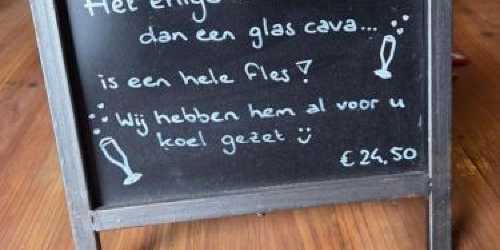 Het enige
dan een glas cava...
is een hele fles!
Wij hebben hem al voor u
koel gezet
€ 24,50